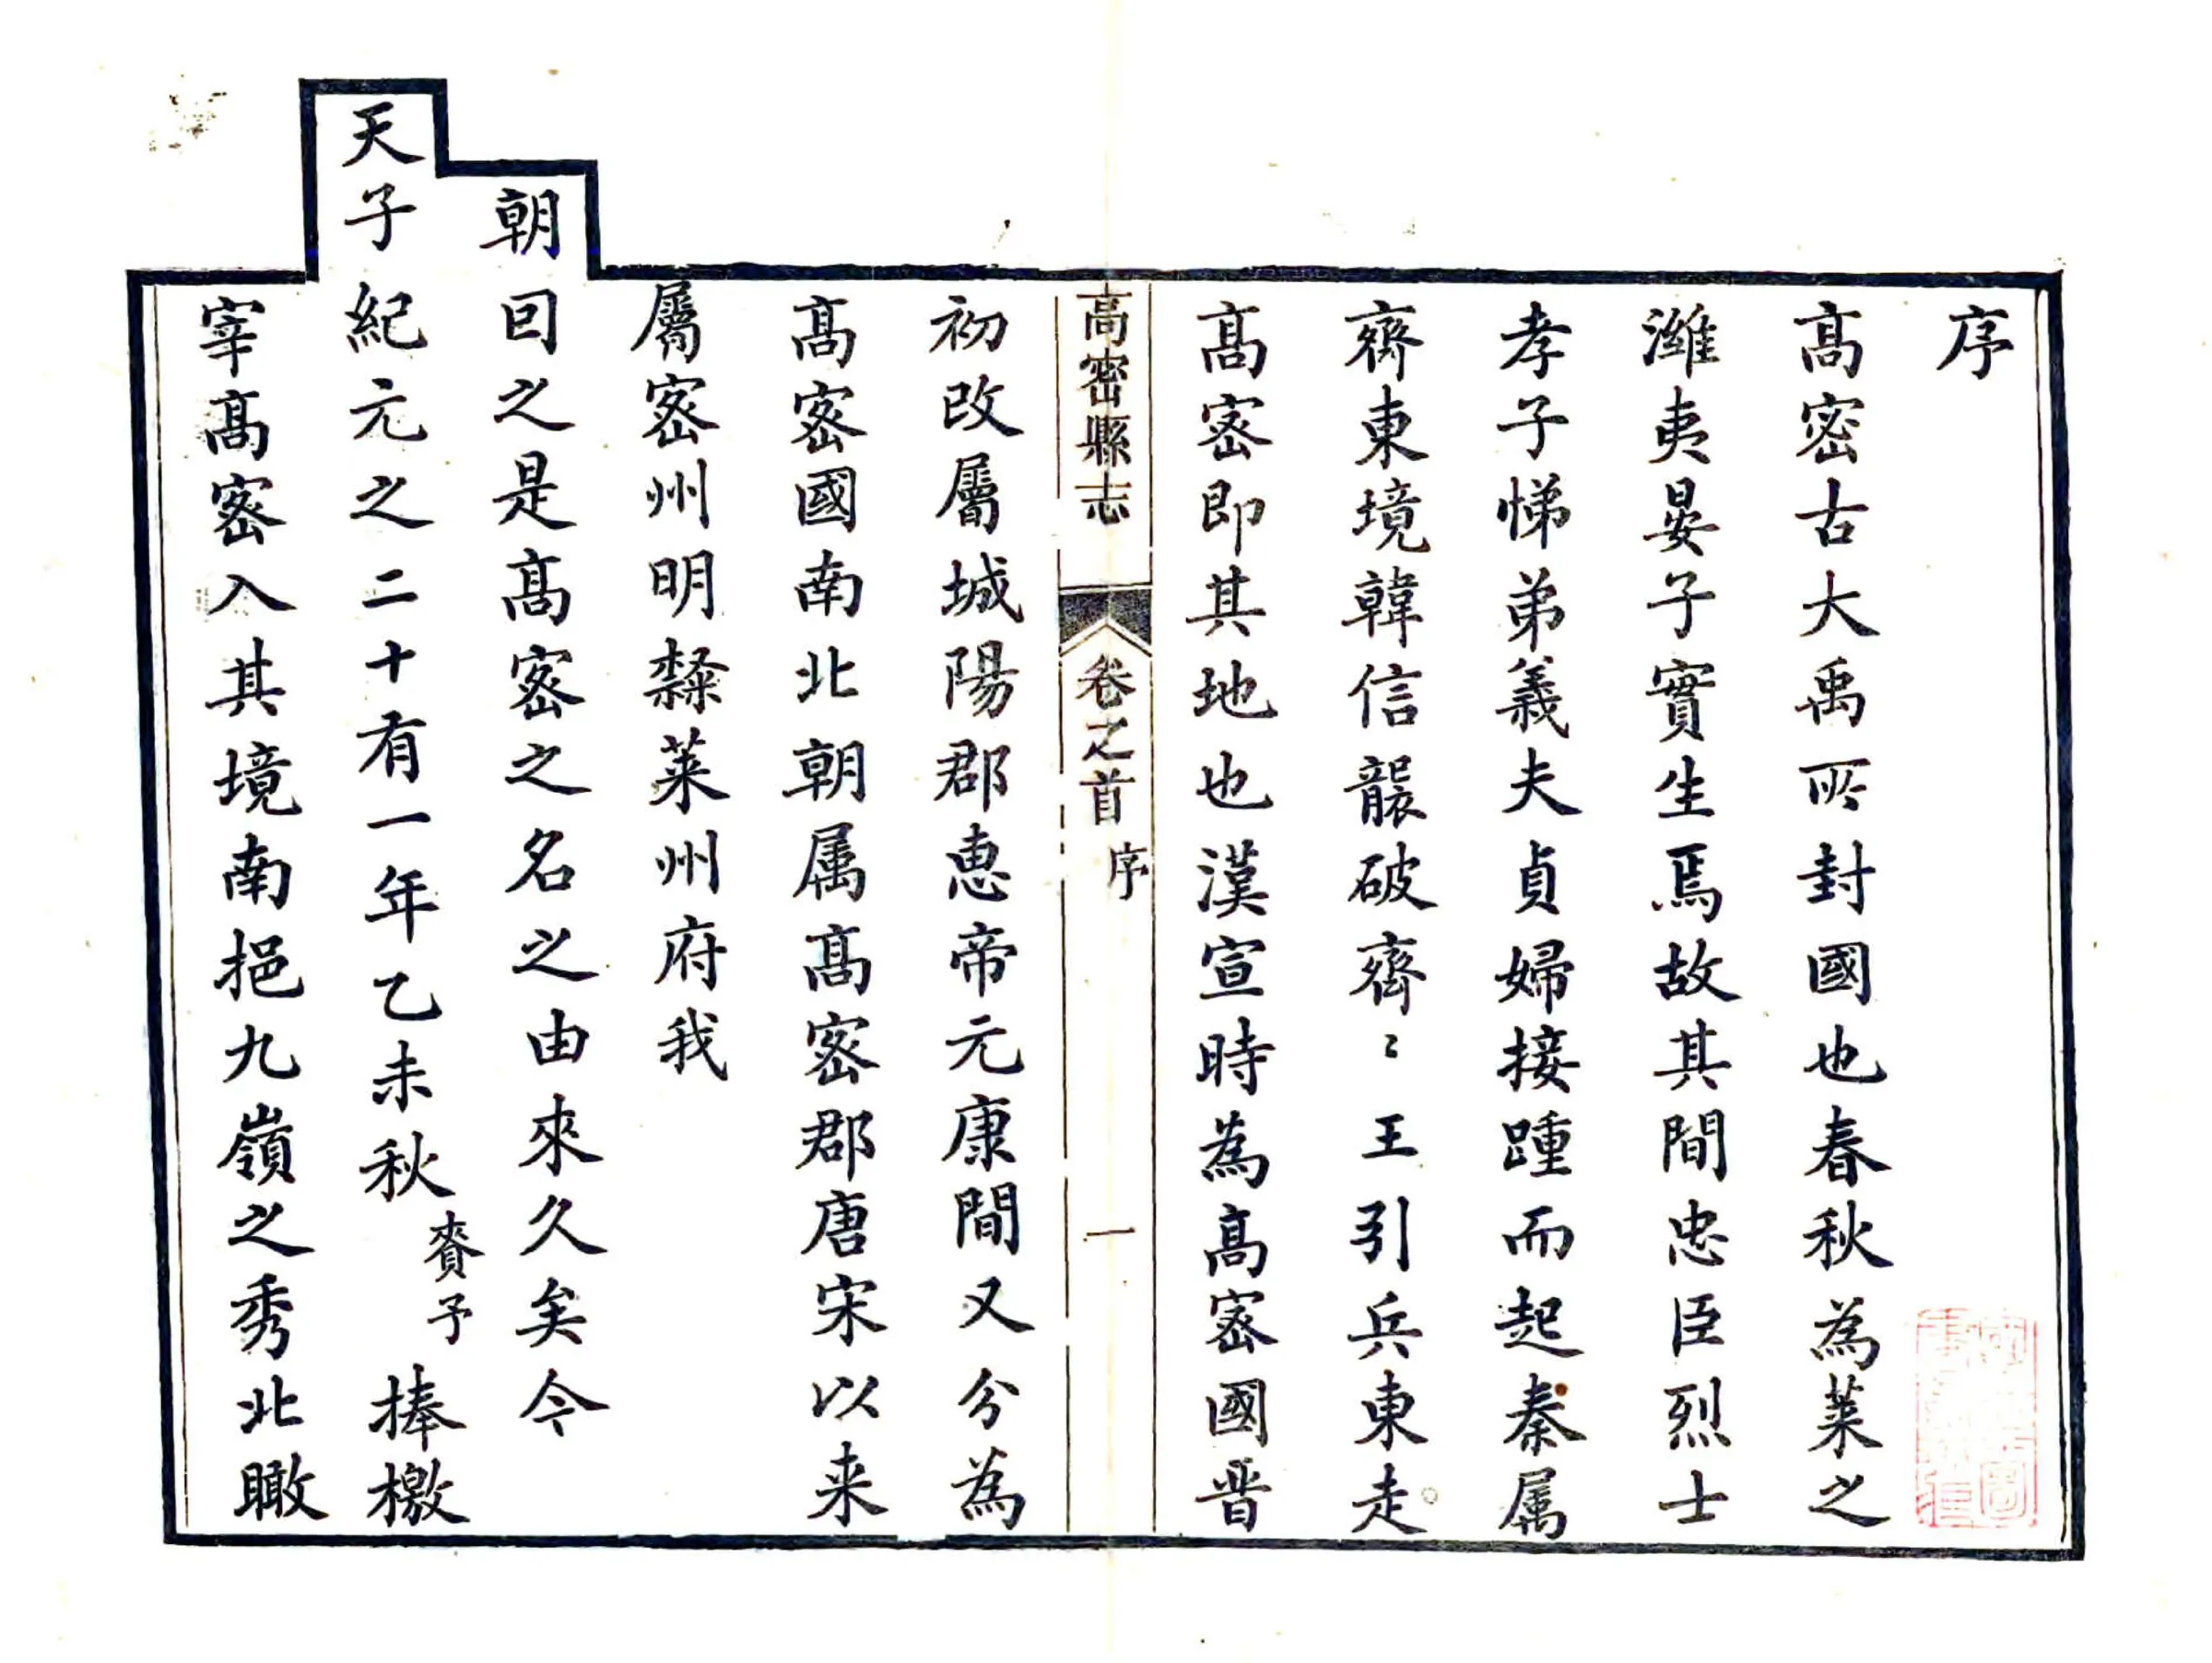 序
髙宻古大禹所封國也春秋為萊之
濰夷晏子實生焉故其間忠臣烈士
孝子悌弟義夫貞婦接踵而起秦属
齊東境韓信襲破齊〻王引兵東走
髙宻即其地也漢宣時為髙宻國晋
高密縣志
卷之首
序
一
初改屬城陽郡惠帝元康間又分為
髙宻國南北朝属髙宻郡唐宋以来
屬宻州明隸萊州府我
朝因之是髙宻之名之由來久矣今
天子紀元之二十有一年乙未秋賚予捧檄
宰髙宻入其境南挹九嶺之秀北瞰